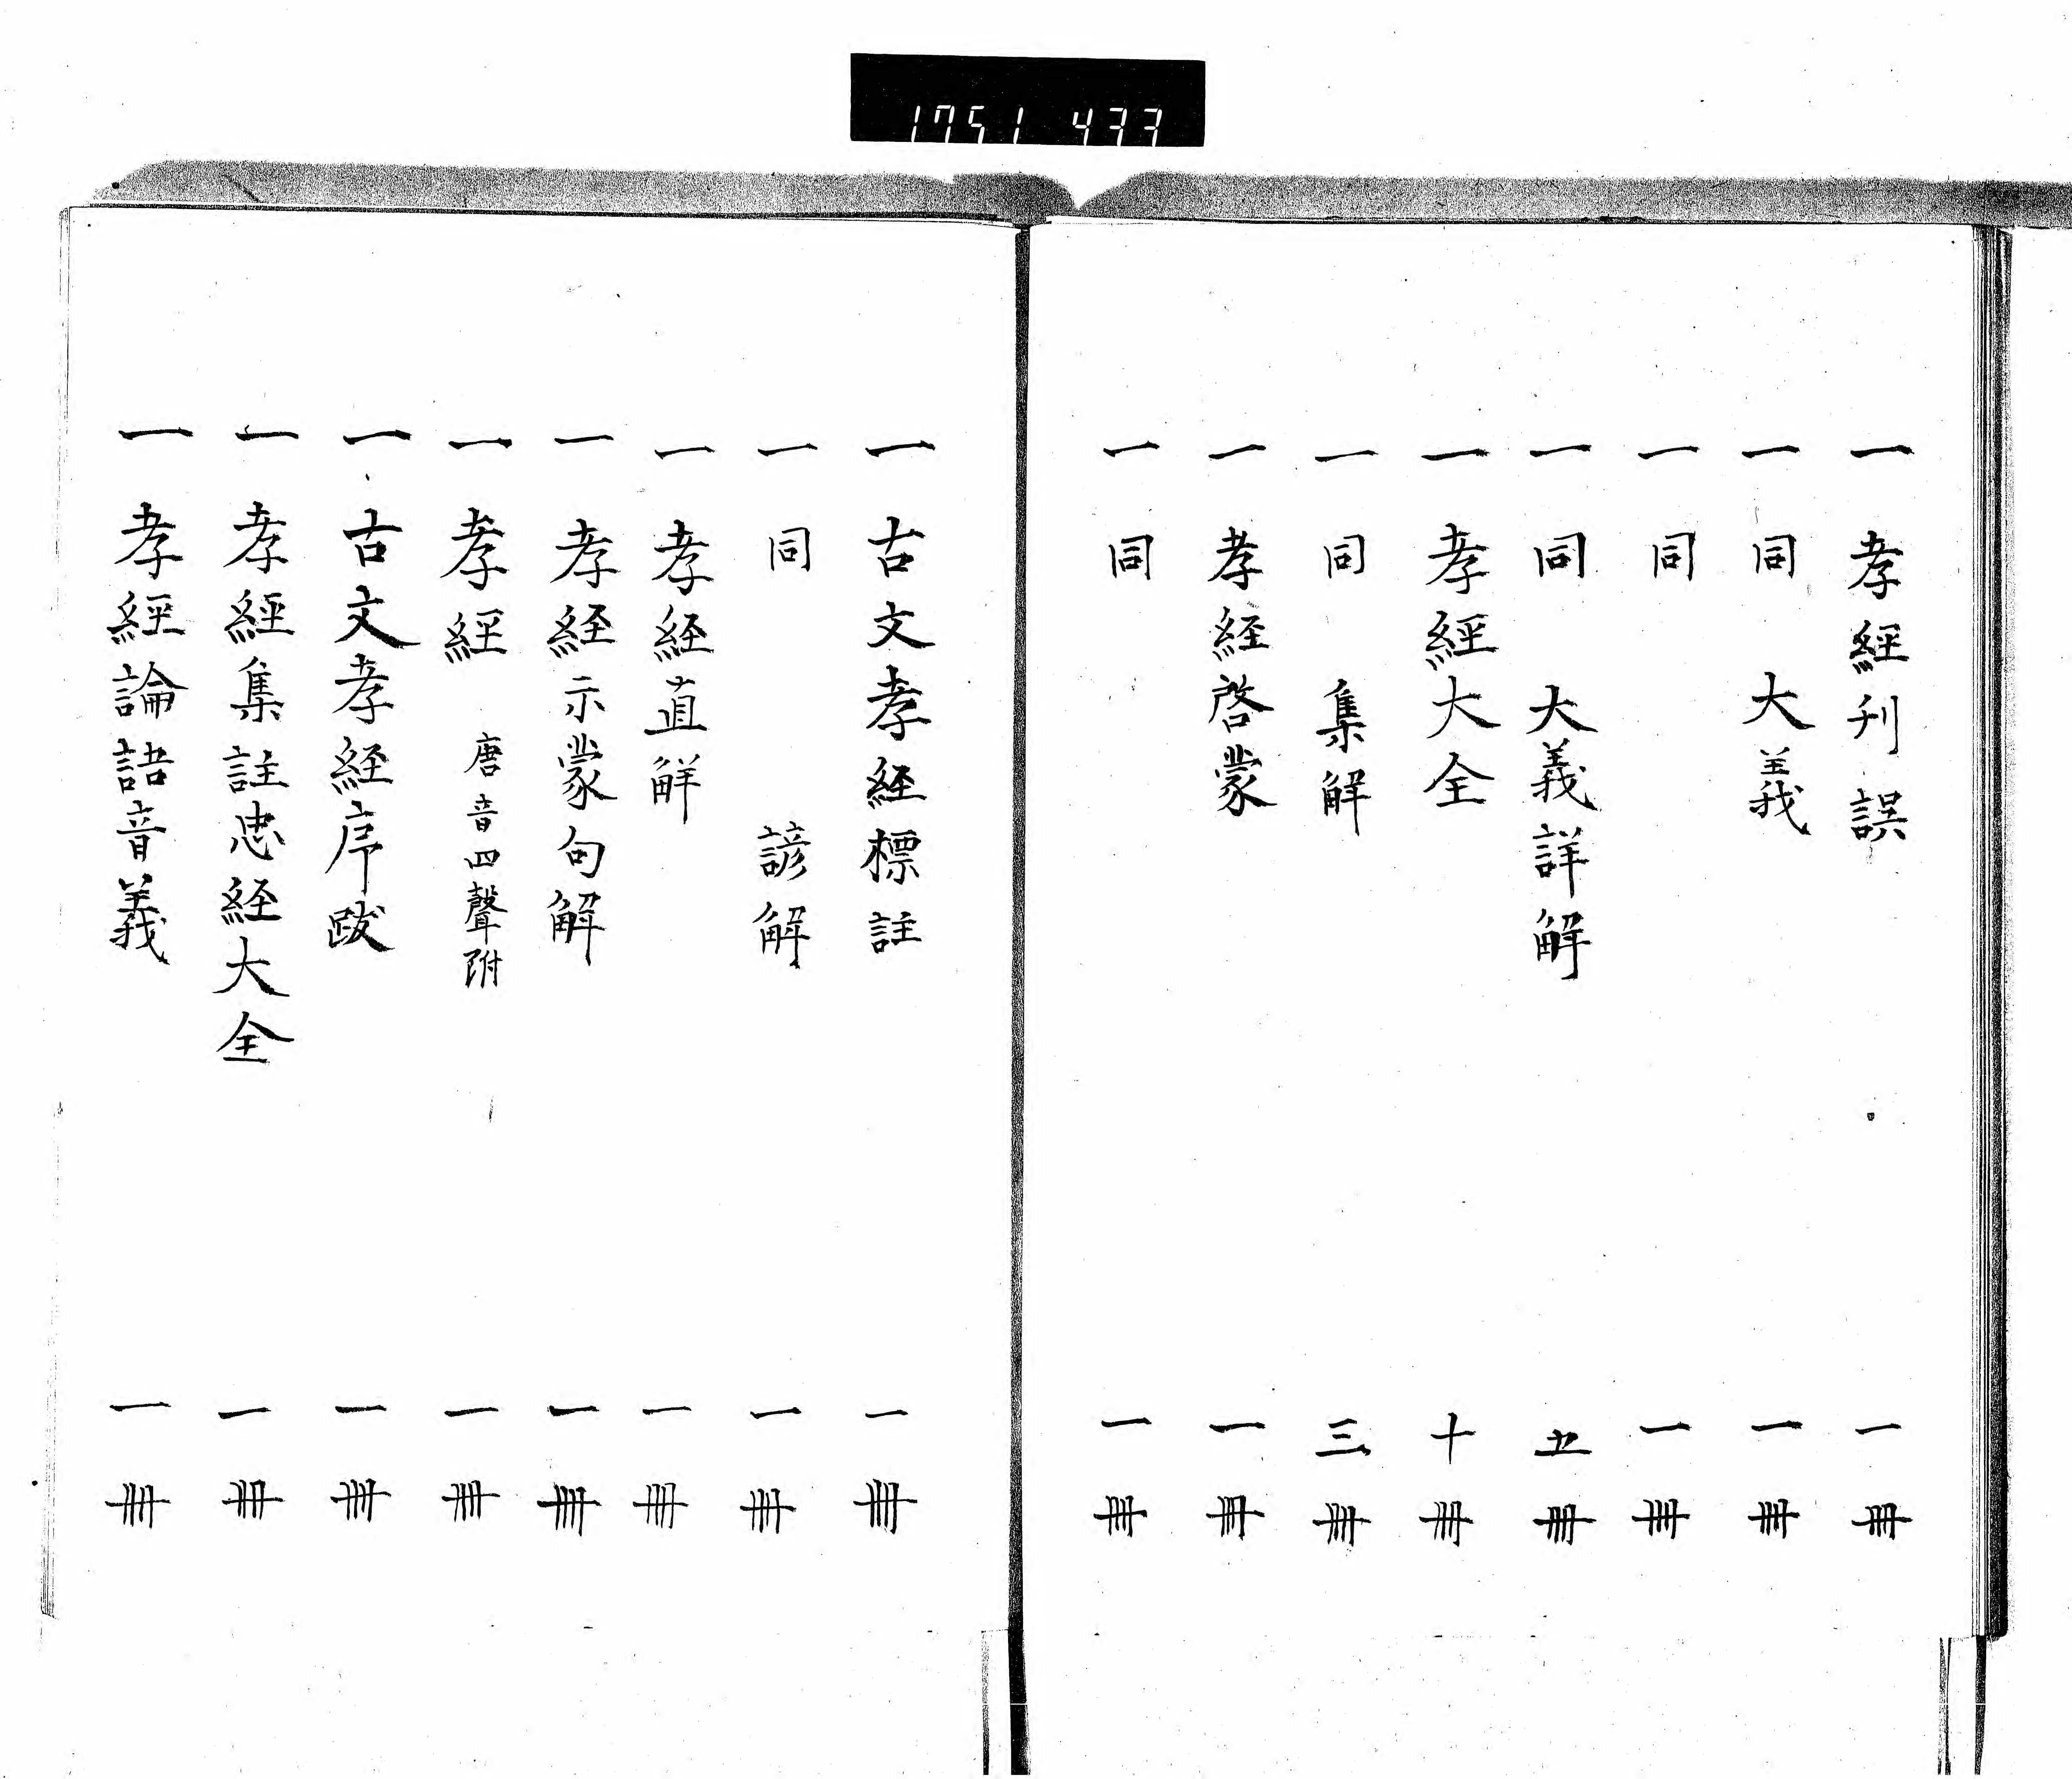 1751 433
一 孝經刊誤 一冊
一 同 大義 一冊
一 同 一冊
一 同 大義詳解 五冊
一 孝經大全 十冊
一 同 集解 三冊
一 孝経啓蒙 一冊
一 同 一冊
一 古文孝経標註 一冊
一 同 諺解 一冊
一 孝経直解 一冊
一 孝経示蒙句解 一冊
一 孝經 唐音四聲附 一冊
一 古文孝経序跋 一冊
一 孝經集註忠経大全 一冊
一 孝經論語音義 一冊